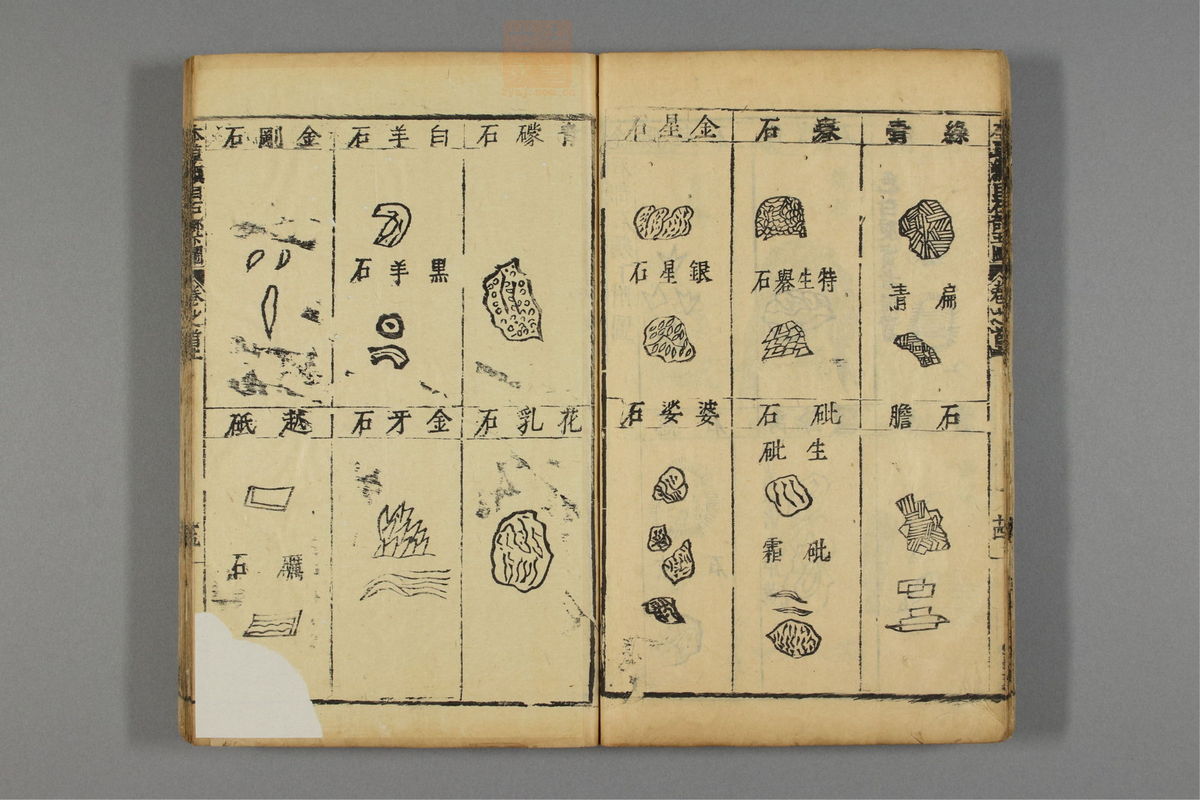 綠青
扁青
礜石
特生礜石
金星石
銀星石
石膽
砒石
生砒
砒霜
婆娑石
青礞石
白羊石
黑羊石
金剛石
花乳石
金牙石
越砥
礪石